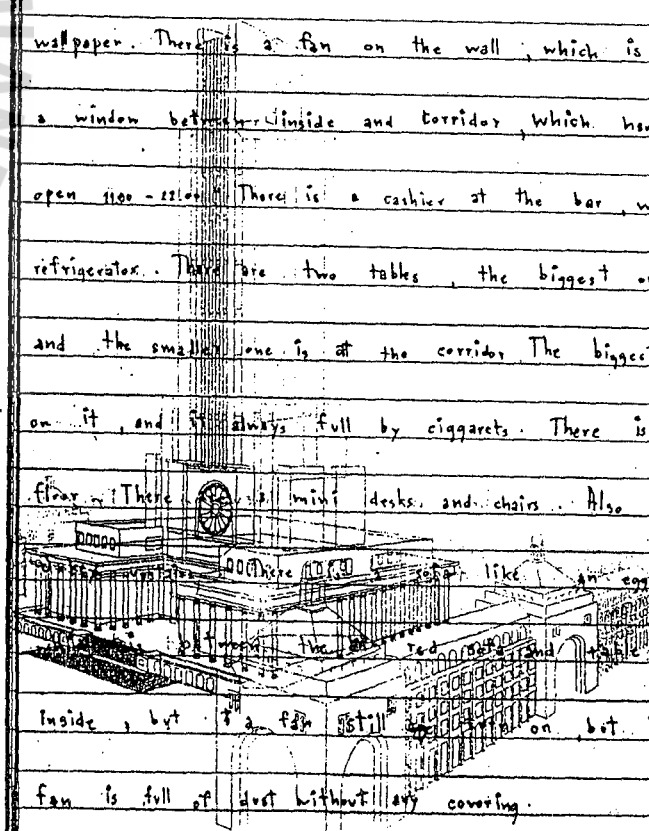 wallpaper. There is a fan on the wall, which is
a window between inside and corridor, which
open 1100 - 22.00 There is a cashier at the bar, w
refrigerator. There are two tables, the biggest o
and the smaller one is at the corridor The bigges
on it, and it always full by ciggarets. There is
floor. There mini desks and chairs. Also
There is a sofa like an egg
the red sofa and table
inside, but a fan still on, but
fan is full of dust without any covering.